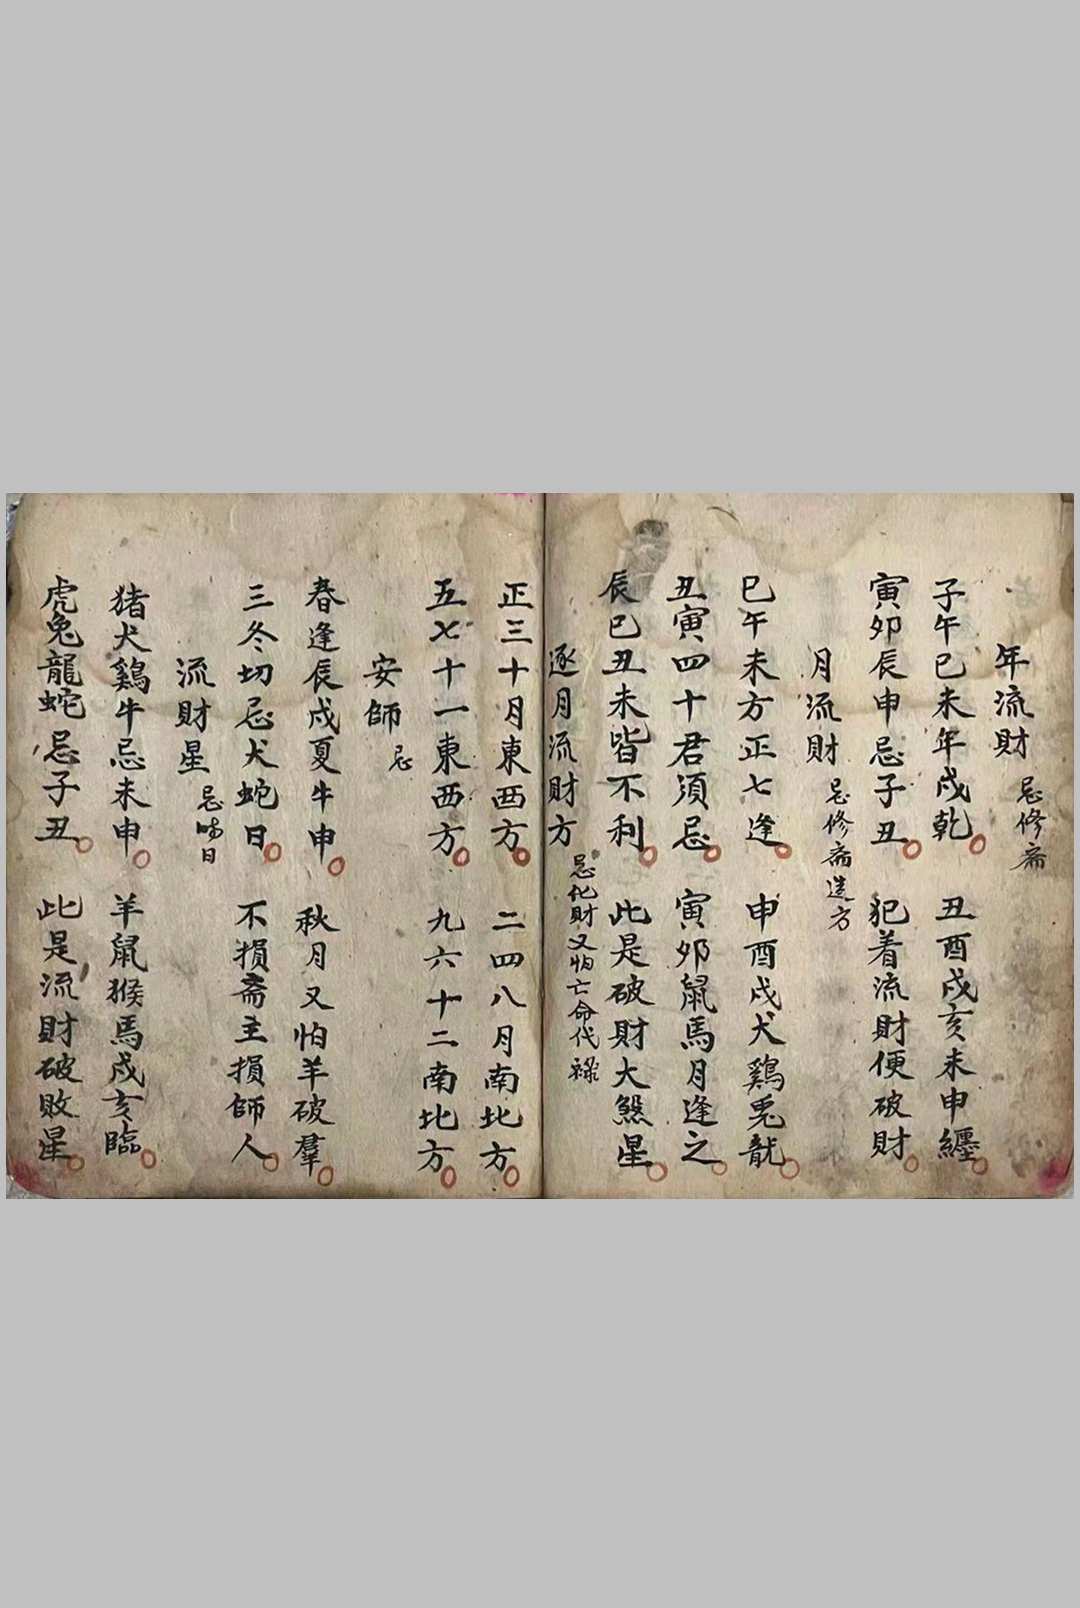 年流財 忌修斋
子午巳未年戍乾 丑酉戍亥未申纏
寅夘辰申忌子丑 犯着流財便破財
月流財 忌修斋造方
巳午未方正七逢 申酉戍犬鷄兎龍
丑寅四十君須忌 寅夘鼠馬月逢之
辰巳丑未皆不利 此是破財大煞星
逐月流財方 忌化財又怕亡命代祿
正三十月東西方 二四八月南北方
五七十一東西方 九六十二南北方
安師 忌
春逢辰戍夏牛申 秋月又怕羊破羣
三冬切忌犬蛇日 不損斋主損師人
流財星 忌 日
猪犬鷄牛忌未申 羊鼠猴馬戍亥臨
虎兔龍蛇忌子丑 此是流財破敗星